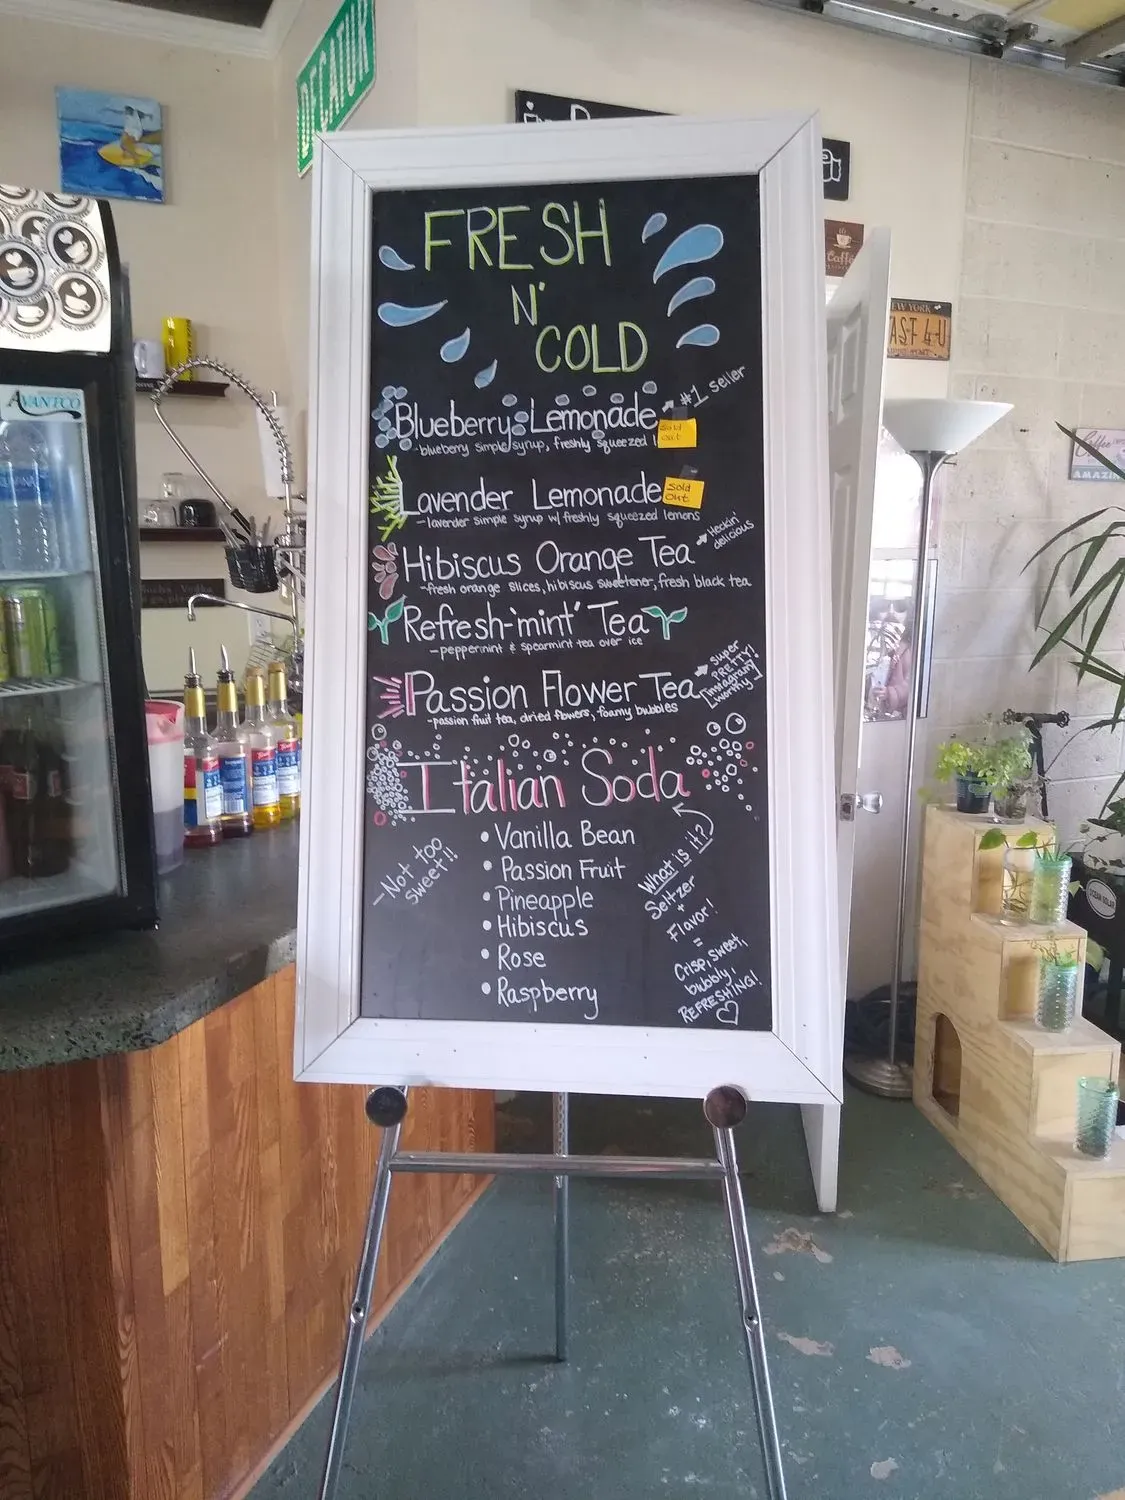 DECATUR
FRESH
N'
COLD
Blueberry Lemonade
#1 seller
-blueberry simple syrup, freshly squeezed l
Sold
out
Lavender Lemonade
Sold
Out
-lavender simple syrup w/ freshly squeezed lemons
Hibiscus Orange Tea
Heckin'
delicious
-fresh orange slices, hibiscus sweetener, fresh black tea
Refresh-'mint' Tea
-peppermint & spearmint tea over ice
Passion Flower Tea
Super
PRETTY!
[instagram
worthy]
-passion fruit tea, dried flowers, foamy bubbles
Italian Soda
-Not too
sweet!!
• Vanilla Bean
• Passion Fruit
• Pineapple
• Hibiscus
• Rose
• Raspberry
What is it?
Seltzer
+
Flavor!
=
Crisp, sweet,
bubbly,
REFRESHING!
AVANTCO
Caffé
NEW YORK
AST 4 U
Coffee
AMAZIN